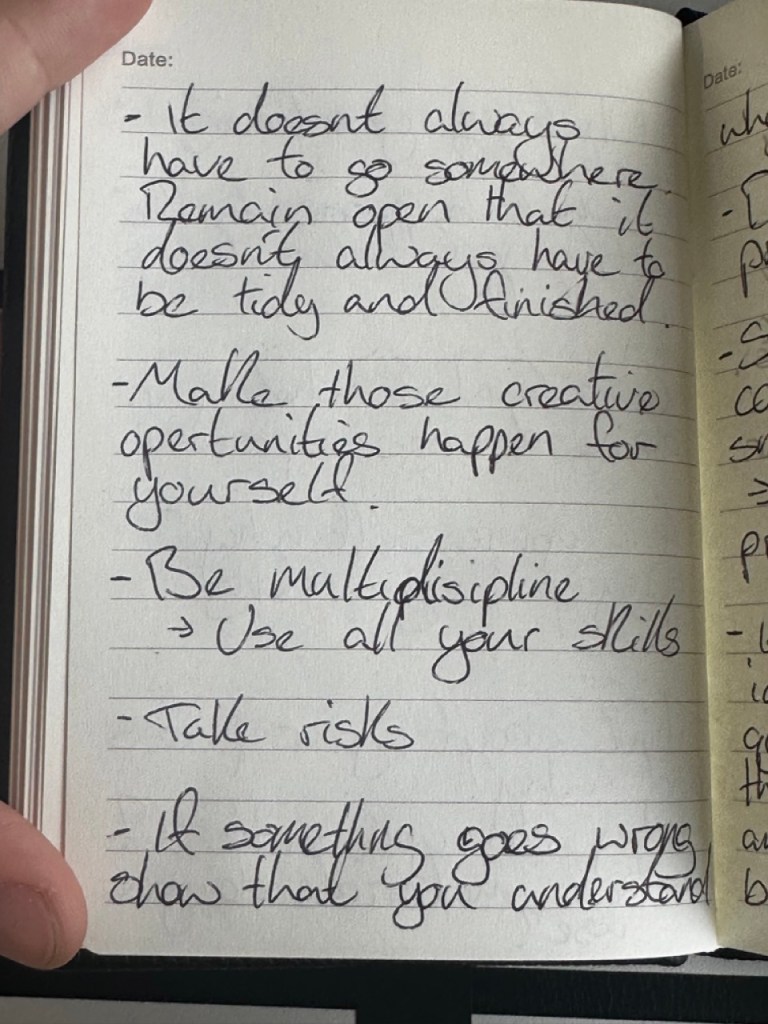 Date:
- It doesnt always
have to go somewhere.
Remain open that it
doesn't always have to
be tidy and finished.
- Make those creative
opertunities happen for
yourself.
- Be multidisipline
→ Use all your skills
- Take risks
- If somethng goes wrong
show that you understand
Date: